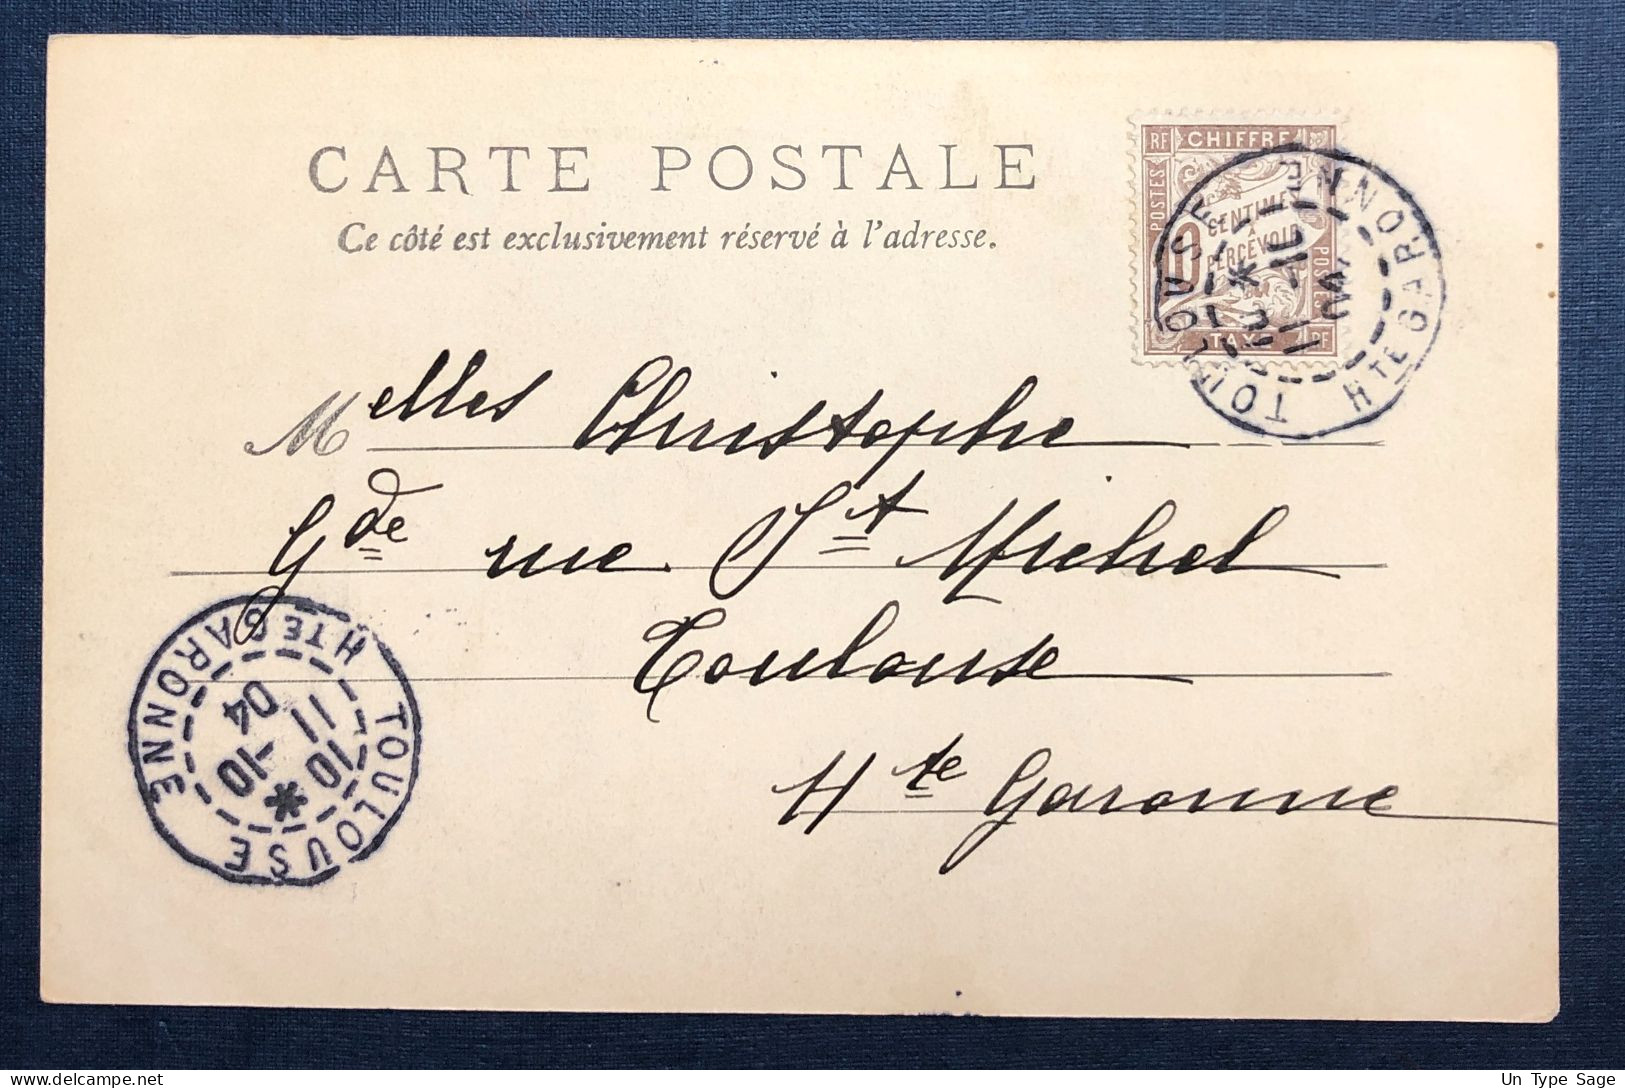 CARTE POSTALE
Ce côté est exclusivement réservé à l'adresse.
RF CHIFFRE
POSTES
10 CENTIMES
A
PERCEVOIR
POSTES
TAXE RF
TOULOUSE
HTE GARONNE
Melles Christophe
Gde rue St Michel
Toulouse
Hte Garonne
TOULOUSE
HTE GARONNE
10
11 -10
04
Un Type Sage